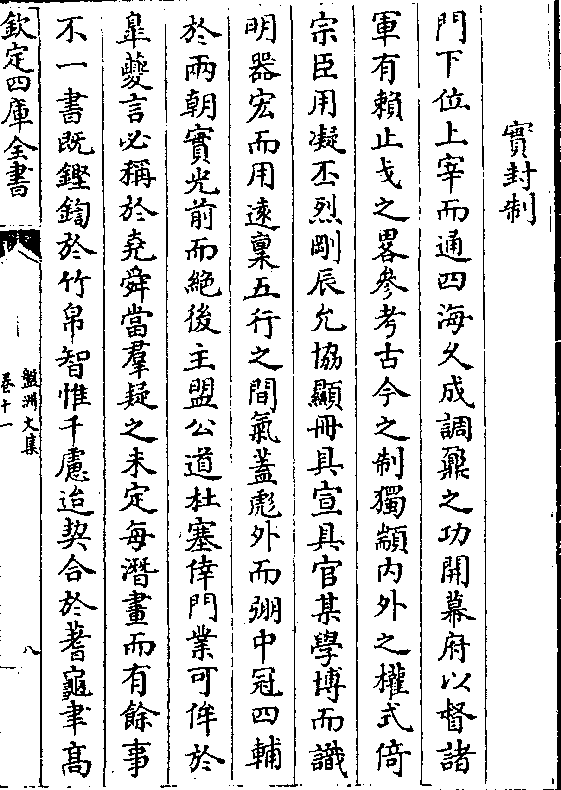 實封制
門下位上宰而通四海久成調鼐之功開幕府以督諸
軍有賴止戈之畧參考古今之制獨顓内外之權式倚
宗臣用凝丕烈剛辰允協顯冊具宣具官某學博而識
明器宏而用遠稟五行之間氣蓋彪外而弸中冠四輔
於兩朝實光前而絶後主盟公道杜塞倖門業可侔於
臯夔言必稱於堯舜當羣疑之未定每潛畫而有餘事
不一書既鏗鍧於竹帛智惟千慮迨契合於蓍龜聿髙
欽定四庫全書
盤洲文集
卷十一
八